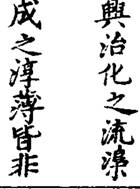 興治化之流湶
成之淳薄皆非